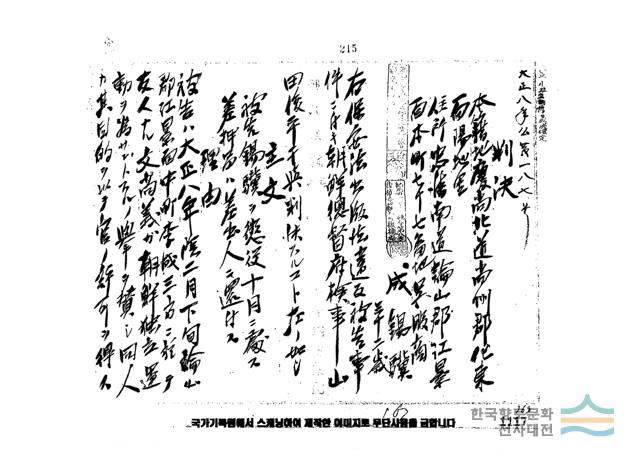 215
大正八年公第一八七号
判決
本籍地慶尚北道尚州郡化東
面陽地里
住所忠清南道論山郡江景
面本町七十七番地呉服商
成錫驥
三十二歳
右保安法出版法違反被告事
件ニ付キ朝鮮總督府検事山
田俊平干與判決スルコト左ノ如シ
主文
被告錫驥ヲ懲役十月ニ處ス
差押品ハ差出人ニ還付ス
理由
被告ハ大正八年陰二月下旬論山
郡江景面中町李成三方ニ於テ
友人ナル文高義カ朝鮮独立運
動ヲ為サントスルノ擧ヲ賛シ同人
カ其目的ヲ以テ官ノ許可ヲ得ス
국가기록원에서 스캐닝하여 제작한 이미지로 무단사용을 금합니다
1117
한국향토문화
전자대전